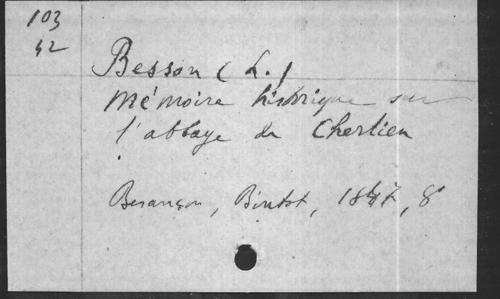 103
42
Besson (L.)
Mémoire historique sur
l'abbaye de Cherlieu
Besançon, Bintot, 1847, 8°